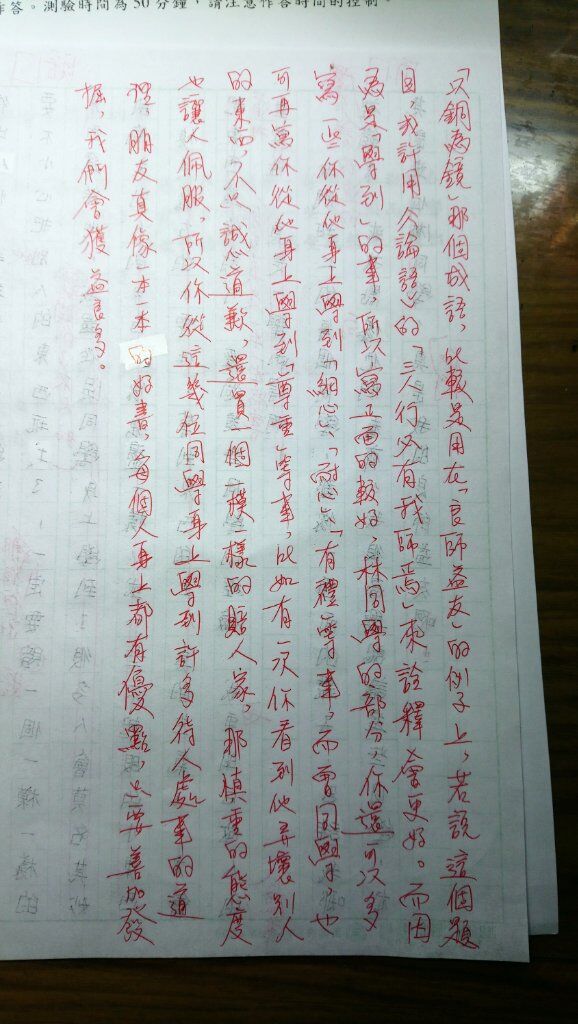 作答。測驗時間為50分鐘，請注意作答時間的控制。
「以銅為鏡」那個成語，比較是用在「良師益友」的例子上，若說這個題
目或許用《論語》的「三人行必有我師焉」來詮釋會更好。而因
為是「學到」的事，所以寫正面的較好，林同學的部分，你還可以多
寫一些你從他身上學到「細心」、「耐心」、「有禮」等事，而曹同學，也
可再寫你從他身上學到「尊重」等事，比如有一次你看到他弄壞別人
的東西，不只誠心道歉，還買一個一模一樣的賠人家，那慎重的態度
也讓人佩服，所以你從這幾位同學身上學到許多待人處事的道
理，朋友真像一本一本的好書，每個人身上都有優點，只要善加發
掘，我們會獲益良多。